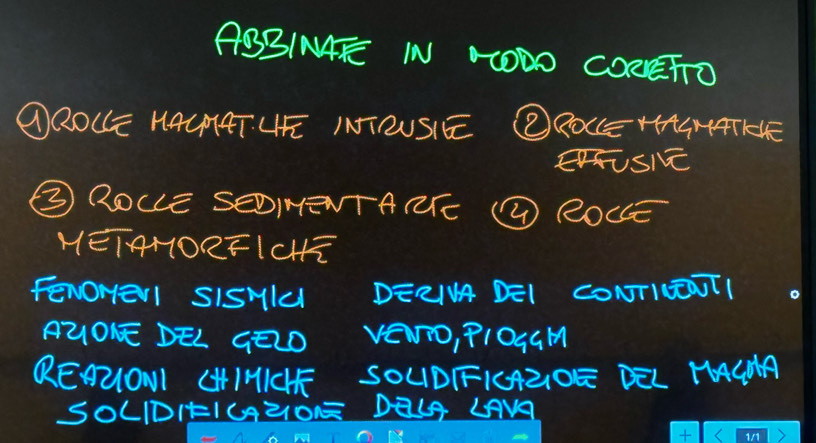 ABBINATE IN MODO CORRETTO
① ROCCE MAGMATICHE INTRUSIVE ② ROCCE MAGMATICHE
EFFUSIVE
③ ROCCE SEDIMENTARIE ④ ROCCE
METAMORFICHE
FENOMENI SISMICI DERIVA DEI CONTINENTI
AZIONE DEL GELO VENTO, PIOGGIA
REAZIONI CHIMICHE SOLIDIFICAZIONE DEL MAGMA
SOLIDIFICAZIONE DELLA LAVA
1/1